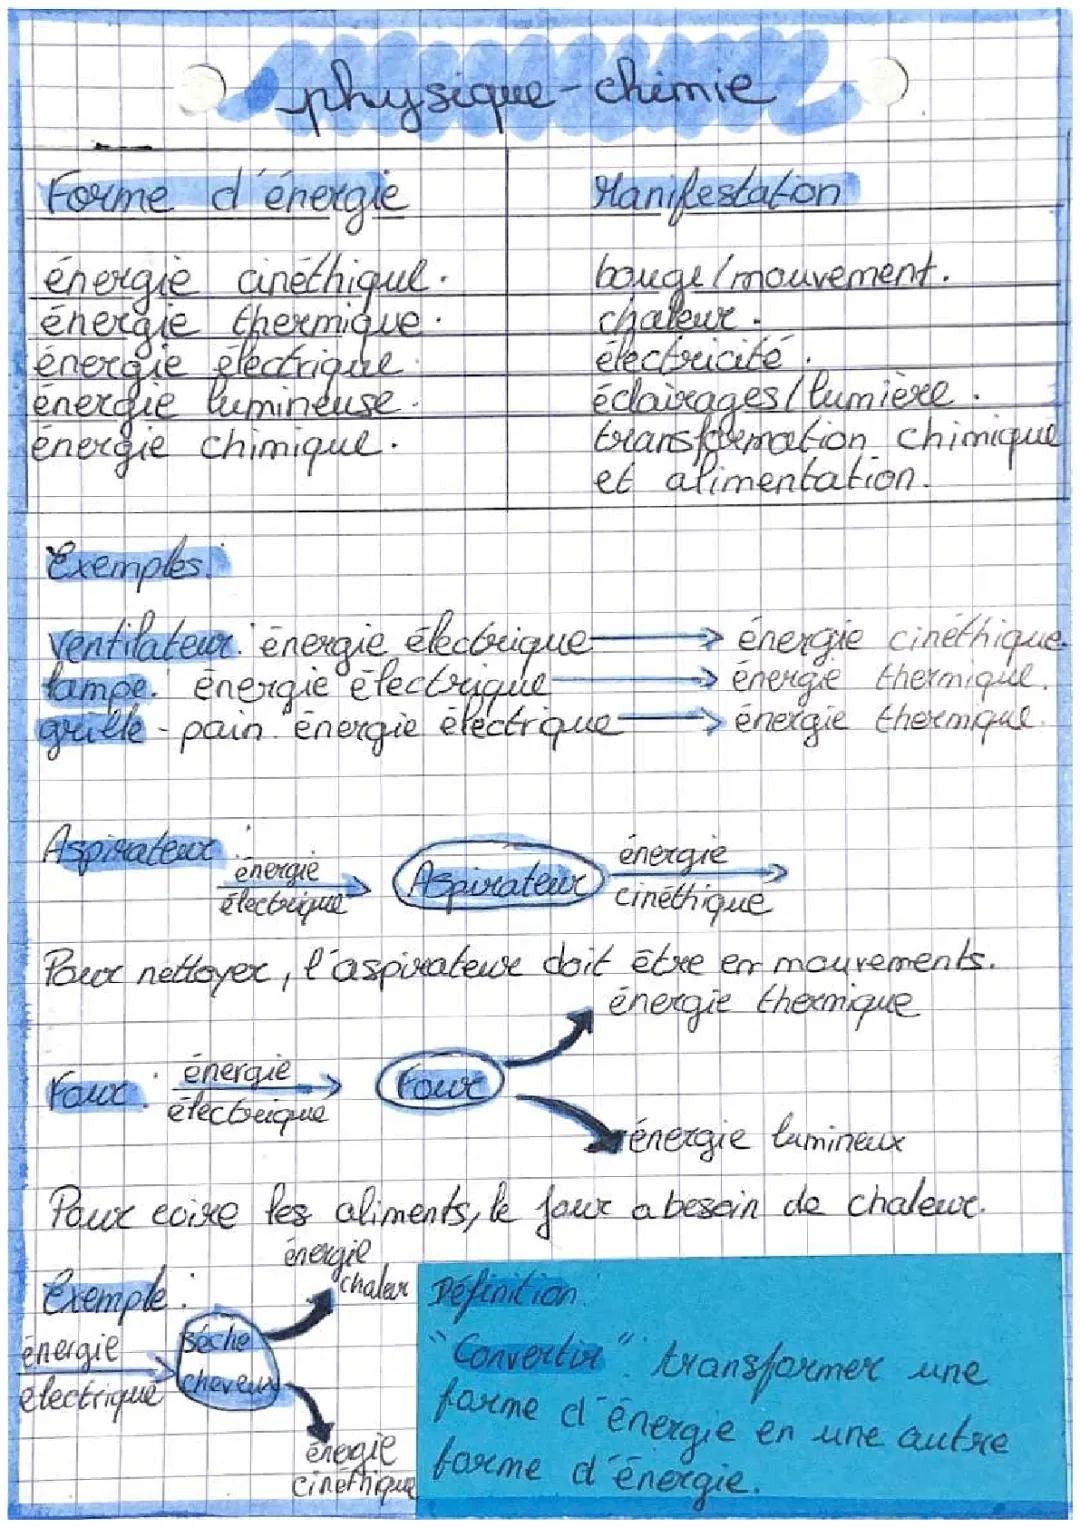 physique-chimie
Forme d'énergie
Manifestation
énergie cinéthique.
bouge/mouvement.
énergie thermique.
chaleur.
énergie électrique.
électricité.
énergie lumineuse.
éclairages/lumière.
énergie chimique.
transformation chimique
et alimentation.
Exemples:
ventilateur: énergie électrique → énergie cinéthique.
lampe: énergie électrique → énergie thermique.
grille-pain: énergie électrique → énergie thermique.
Aspirateur:
énergie
électrique
Aspirateur
énergie
cinéthique
Pour nettoyer, l'aspirateur doit être en mouvements.
énergie thermique
Four:
énergie
électrique
Four
énergie lumineux
Pour cuire les aliments, le four a besoin de chaleur.
Exemple:
énergie
électrique
Sèche
cheveux
énergie
chaleur
énergie
cinéthique
Définition:
"Convertir": transformer une
forme d'énergie en une autre
forme d'énergie.